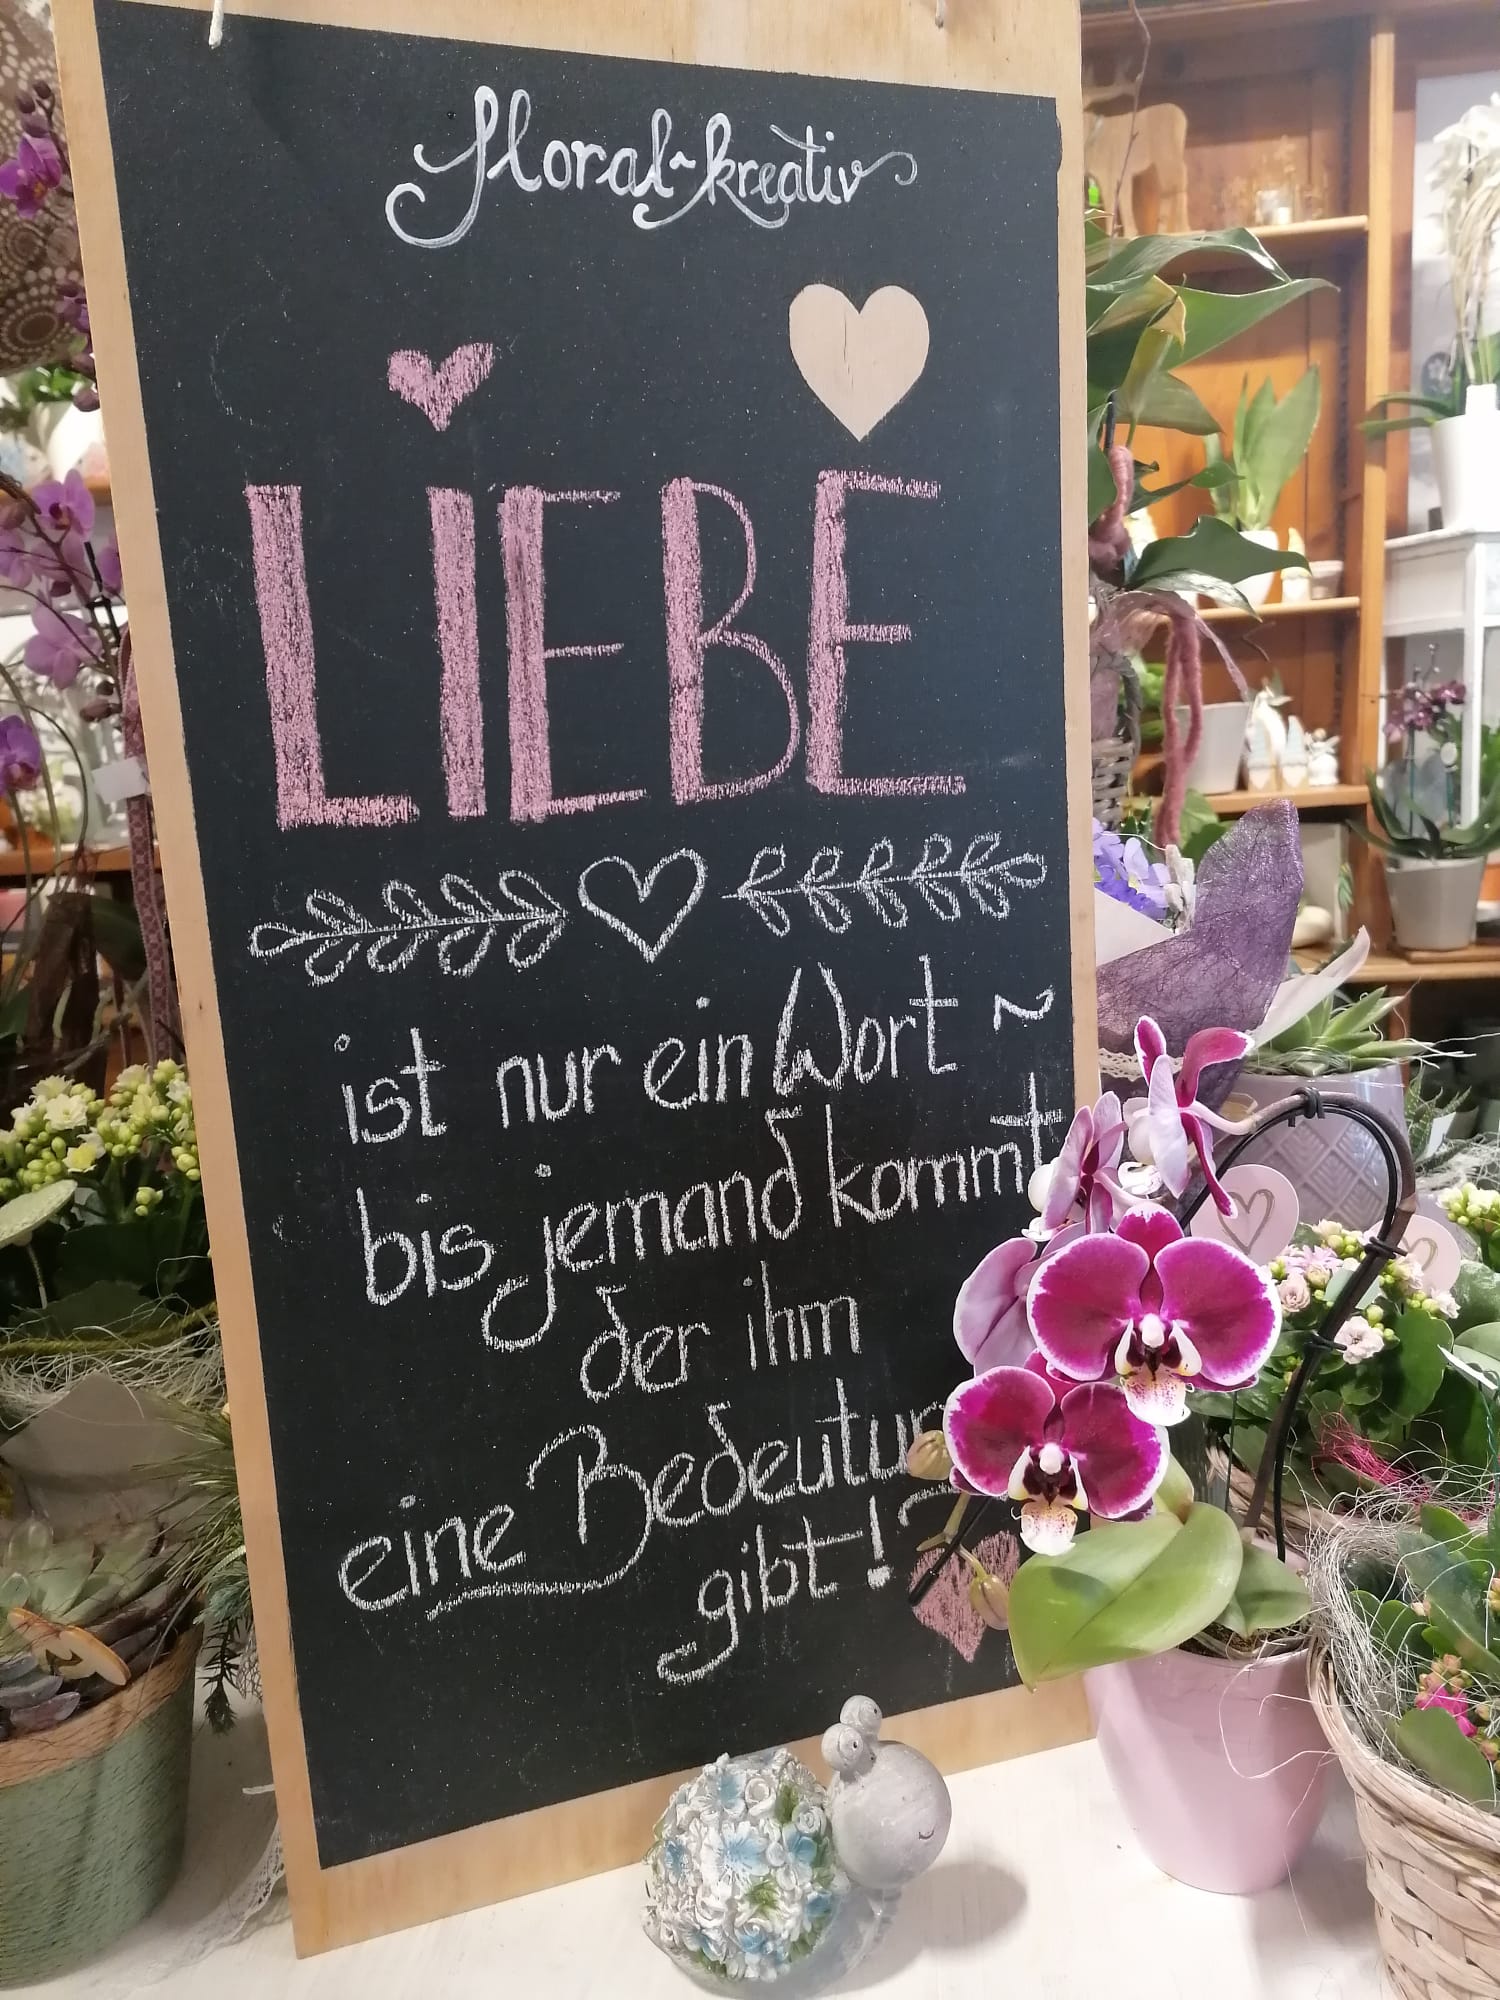 floral~kreativ
LIEBE
ist nur ein Wort ~
bis jemand kommt
der ihm
eine Bedeutun
gibt!